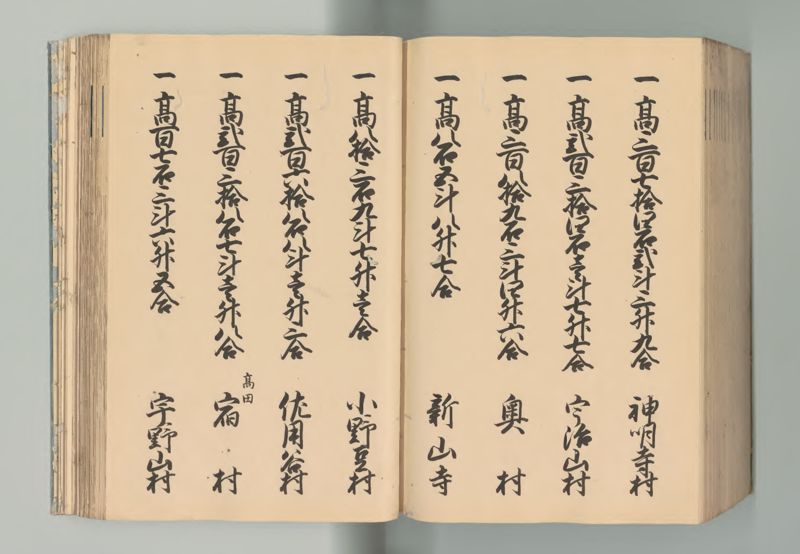 一 高三百七拾四石弐斗三升九合 神明寺村
一 高弐百三拾四石壱斗七升七合 宇治山村
一 高三百八拾九石三斗四升六合 奥村
一 高八石五斗八升七合 新山寺
一 高八拾三石九斗七升壱合 小野豆村
一 高弐百六拾八石八斗壱升二合 佐用谷村
一 高弐百三拾八石七斗壱升八合 高田 宿村
一 高百七石三斗六升五合 宇野山村